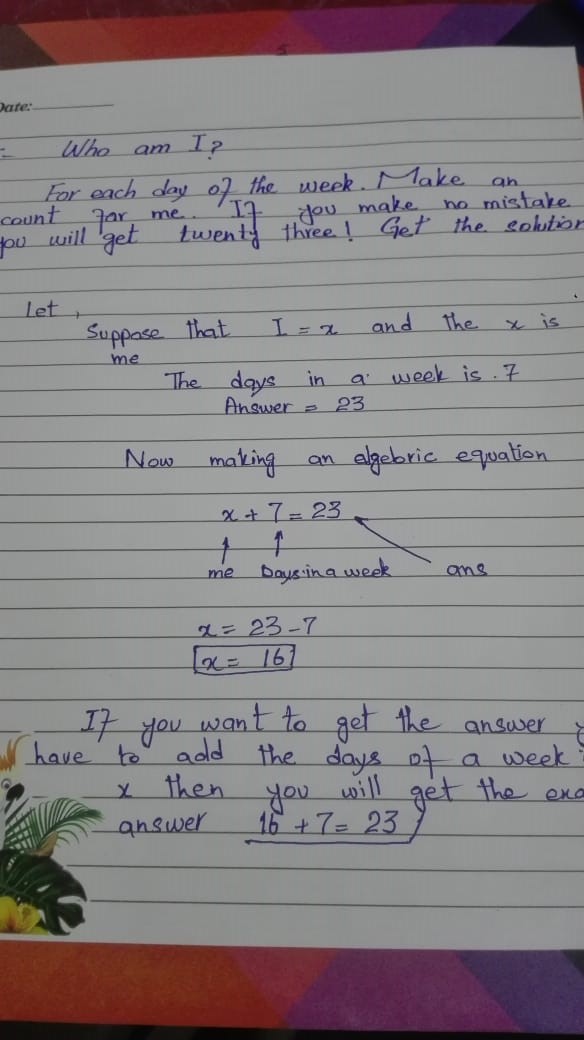 Date:
Who am I?
For each day of the week. Make an
count for me. If you make no mistake
you will get twenty three! Get the solution
Let,
Suppose that I = x and the x is
me
The days in a week is . 7
Answer = 23
Now making an algebric equation
x + 7 = 23
me Days in a week ans
x = 23 - 7
x = 16
If you want to get the answer
have to add the days of a week
x then you will get the
answer 16 + 7 = 23